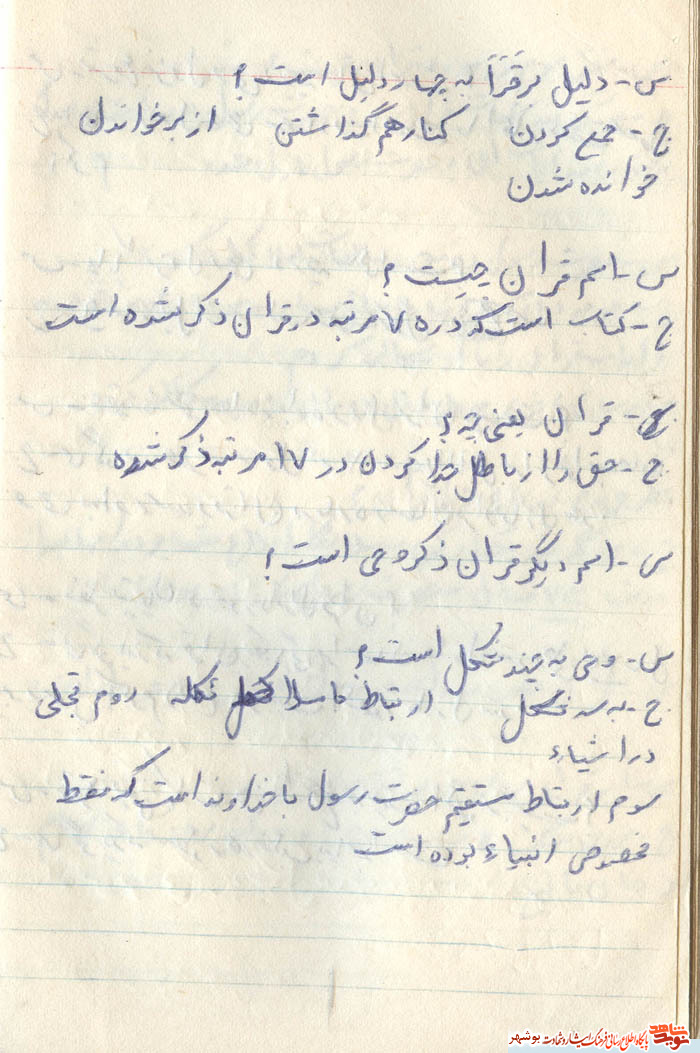 س - دلیل برقَرَاَ به چهار دلیل است؟
ج - جمع کردن کنار هم گذاشتن از بر خواندن
خوانده شدن
س - اسم قران چیست؟
ج - کتاب است که در ۷۰ مرتبه در قران ذکر شده است
قران یعنی چه؟
ج - حق را از باطل جدا کردن در ۱۷ مرتبه ذکر شده
س - اسم دیگر قران ذکر وحی است؟
س - وحی به چند شکل است؟
ج - به سه شکل ارتباط دوم تجلی
در اشیاء
سوم ارتباط مستقیم حضرت رسول با خداوند است که فقط
مخصوص انبیاء بوده است
نوید شاهد پایگاه اطلاع رسانی فرهنگ ایثار و شهادت بوشهر